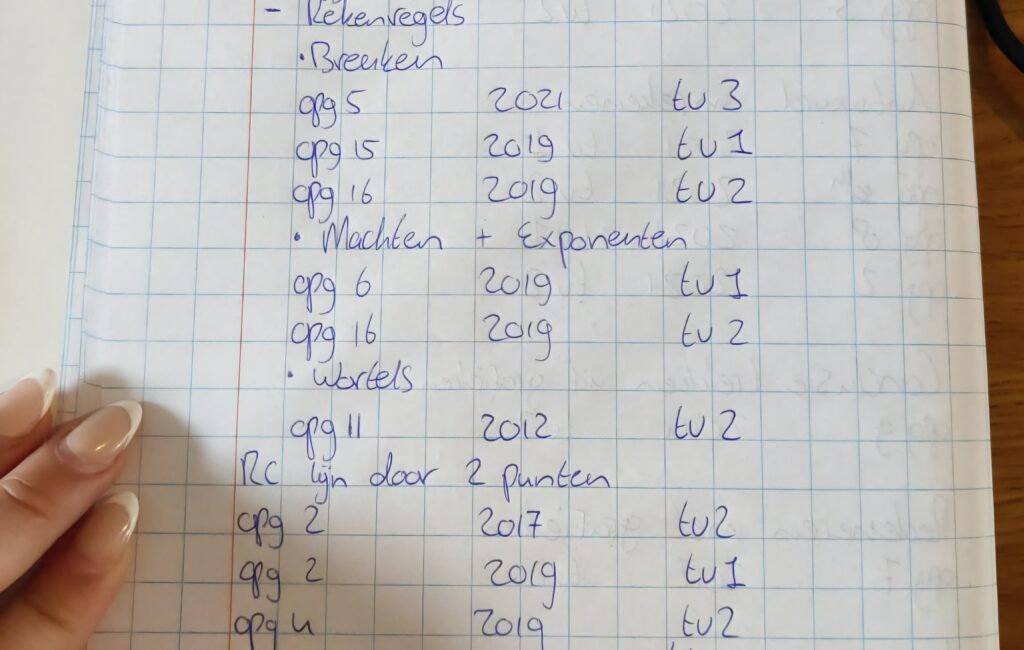 - Rekenregels
• Breuken
opg 5 2021 tv 3
opg 15 2019 tv 1
opg 16 2019 tv 2
• Machten + Exponenten
opg 6 2019 tv 1
opg 16 2019 tv 2
• Wortels
opg 11 2012 tv 2
RC lijn door 2 punten
opg 2 2017 tv 2
opg 2 2019 tv 1
opg 4 2019 tv 2